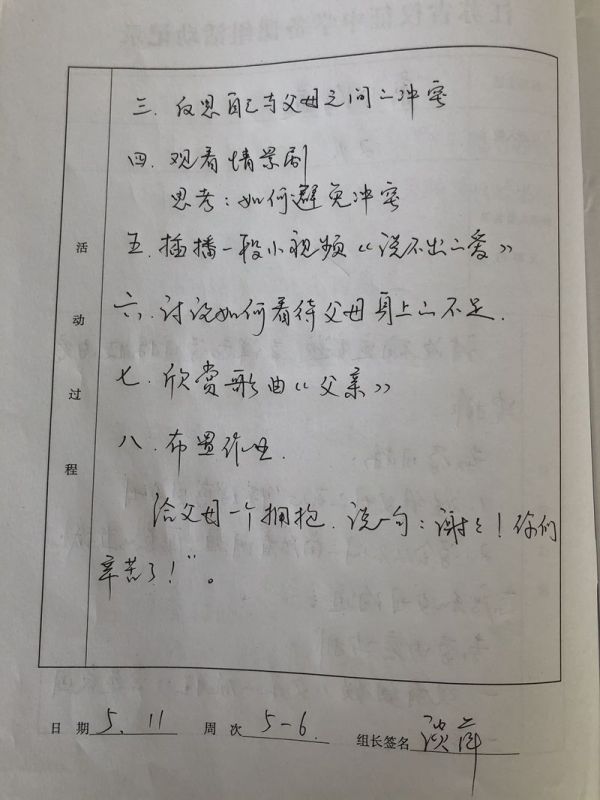 三、反思自己与父母之间的冲突
四、观看情景剧
思考：如何避免冲突
五、插播一段小视频《说不出的爱》
六、讨论如何看待父母身上的不足.
七、欣赏歌曲《父亲》
八、布置作业.
给父母一个拥抱.说一句：谢谢！你们
辛苦了！”。
活动过程
日期 5.11 周次 5-6 组长签名